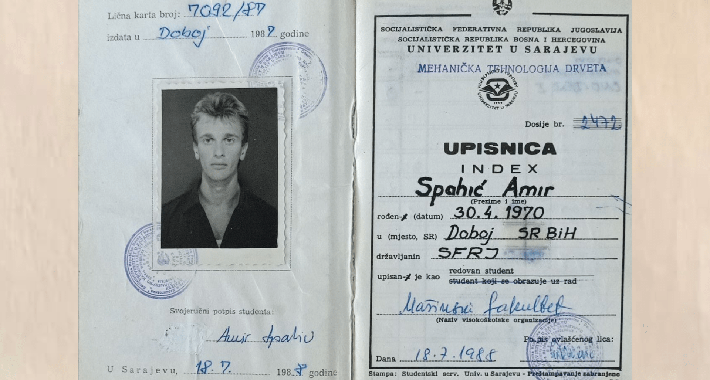 Lična karta broj: 7092/87
izdata u Doboj 1987 godine
Svojeručni potpis studenta:
Amir Spahić
U Sarajevu, 18. 7. 1988 godine
SOCIJALISTIČKA FEDERATIVNA REPUBLIKA JUGOSLAVIJA
SOCIJALISTIČKA REPUBLIKA BOSNA I HERCEGOVINA
UNIVERZITET U SARAJEVU
MEHANIČKA TEHNOLOGIJA DRVETA
Dosije br. 2472
UPISNICA
INDEX
Spahić Amir
(Prezime i ime)
rođen-a (datum) 30.4.1970
u (mjesto, SR) Doboj SR BiH
državljanin SFRJ
upisan-a je kao redovan student
student koji se obrazuje uz rad
Mašinski fakultet
(Naziv visokoškolske organizacije)
Potpis ovlašćenog lica:
Dana 18.7.1988
Štampa: Studentski serv. Univ. u Sarajevu - Preštampavanje zabranjeno